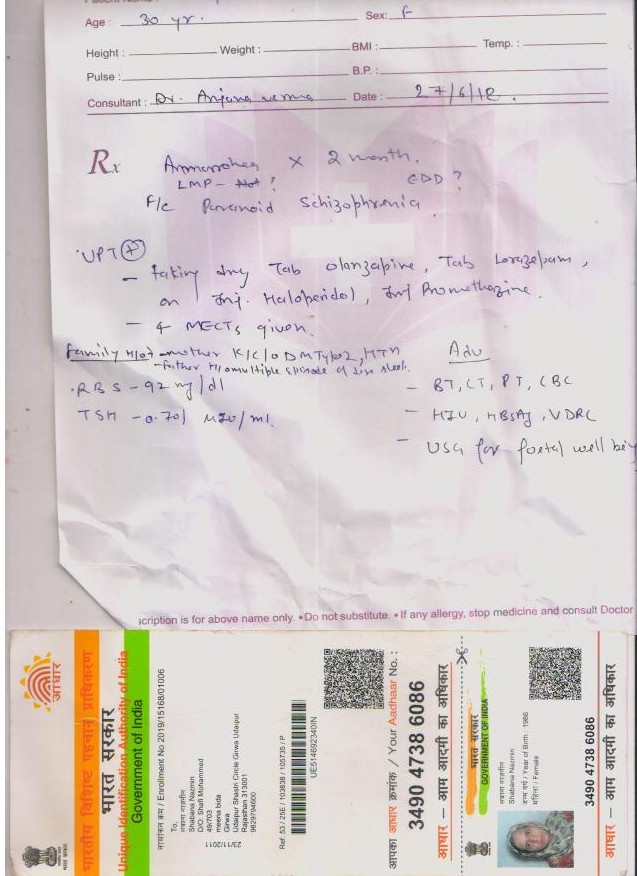 Age : 30 yr. Sex: F
Height : Weight : BMI : Temp. :
Pulse : B.P. :
Consultant : Dr. Anjana verma Date : 27/6/18.
Rx
Ammorrohea x 2 month.
LMP - Not ? EDD ?
F/c Paranoid Schizophrenia
UPT (+)
- taking Tab Olanzapine, Tab Lorazepam,
on Inj. Haloperidol, Inj Promethazine.
- 4 MECTs given.
Family H/o - mother K/C/o DM Type 2, HTN
- father H/o multiple
Adv
RBS - 92 mg/dl
TSH - 0.701 uIU/ml.
- BT, CT, PT, CBC
- HIV, HBsAg, VDRL
- USG for foetal well bein
scription is for above name only. • Do not substitute. • If any allergy, stop medicine and consult Doctor
आधार
भारतीय विशिष्ट पहचान प्राधिकरण
भारत सरकार
Unique Identification Authority of India
Government of India
नामांकन क्रम / Enrollment No 2019/15168/01006
To,
शबाना नाज़मीन
Shabana Nazmin
D/O: Shafi Mohammed
49703
meena bda
Girwa
Udaipur Shastri Circle Girwa Udaipur
Rajasthan 313001
9829794600
23/11/2011
Ref: 53 / 25E / 103838 / 105735 / P
UE514692340IN
आपका आधार क्रमांक / Your Aadhaar No. :
3490 4738 6086
आधार – आम आदमी का अधिकार
भारत सरकार
GOVERNMENT OF INDIA
शबाना नाज़मीन
Shabana Nazmin
जन्म वर्ष / Year of Birth : 1986
महिला / Female
3490 4738 6086
आधार – आम आदमी का अधिकार